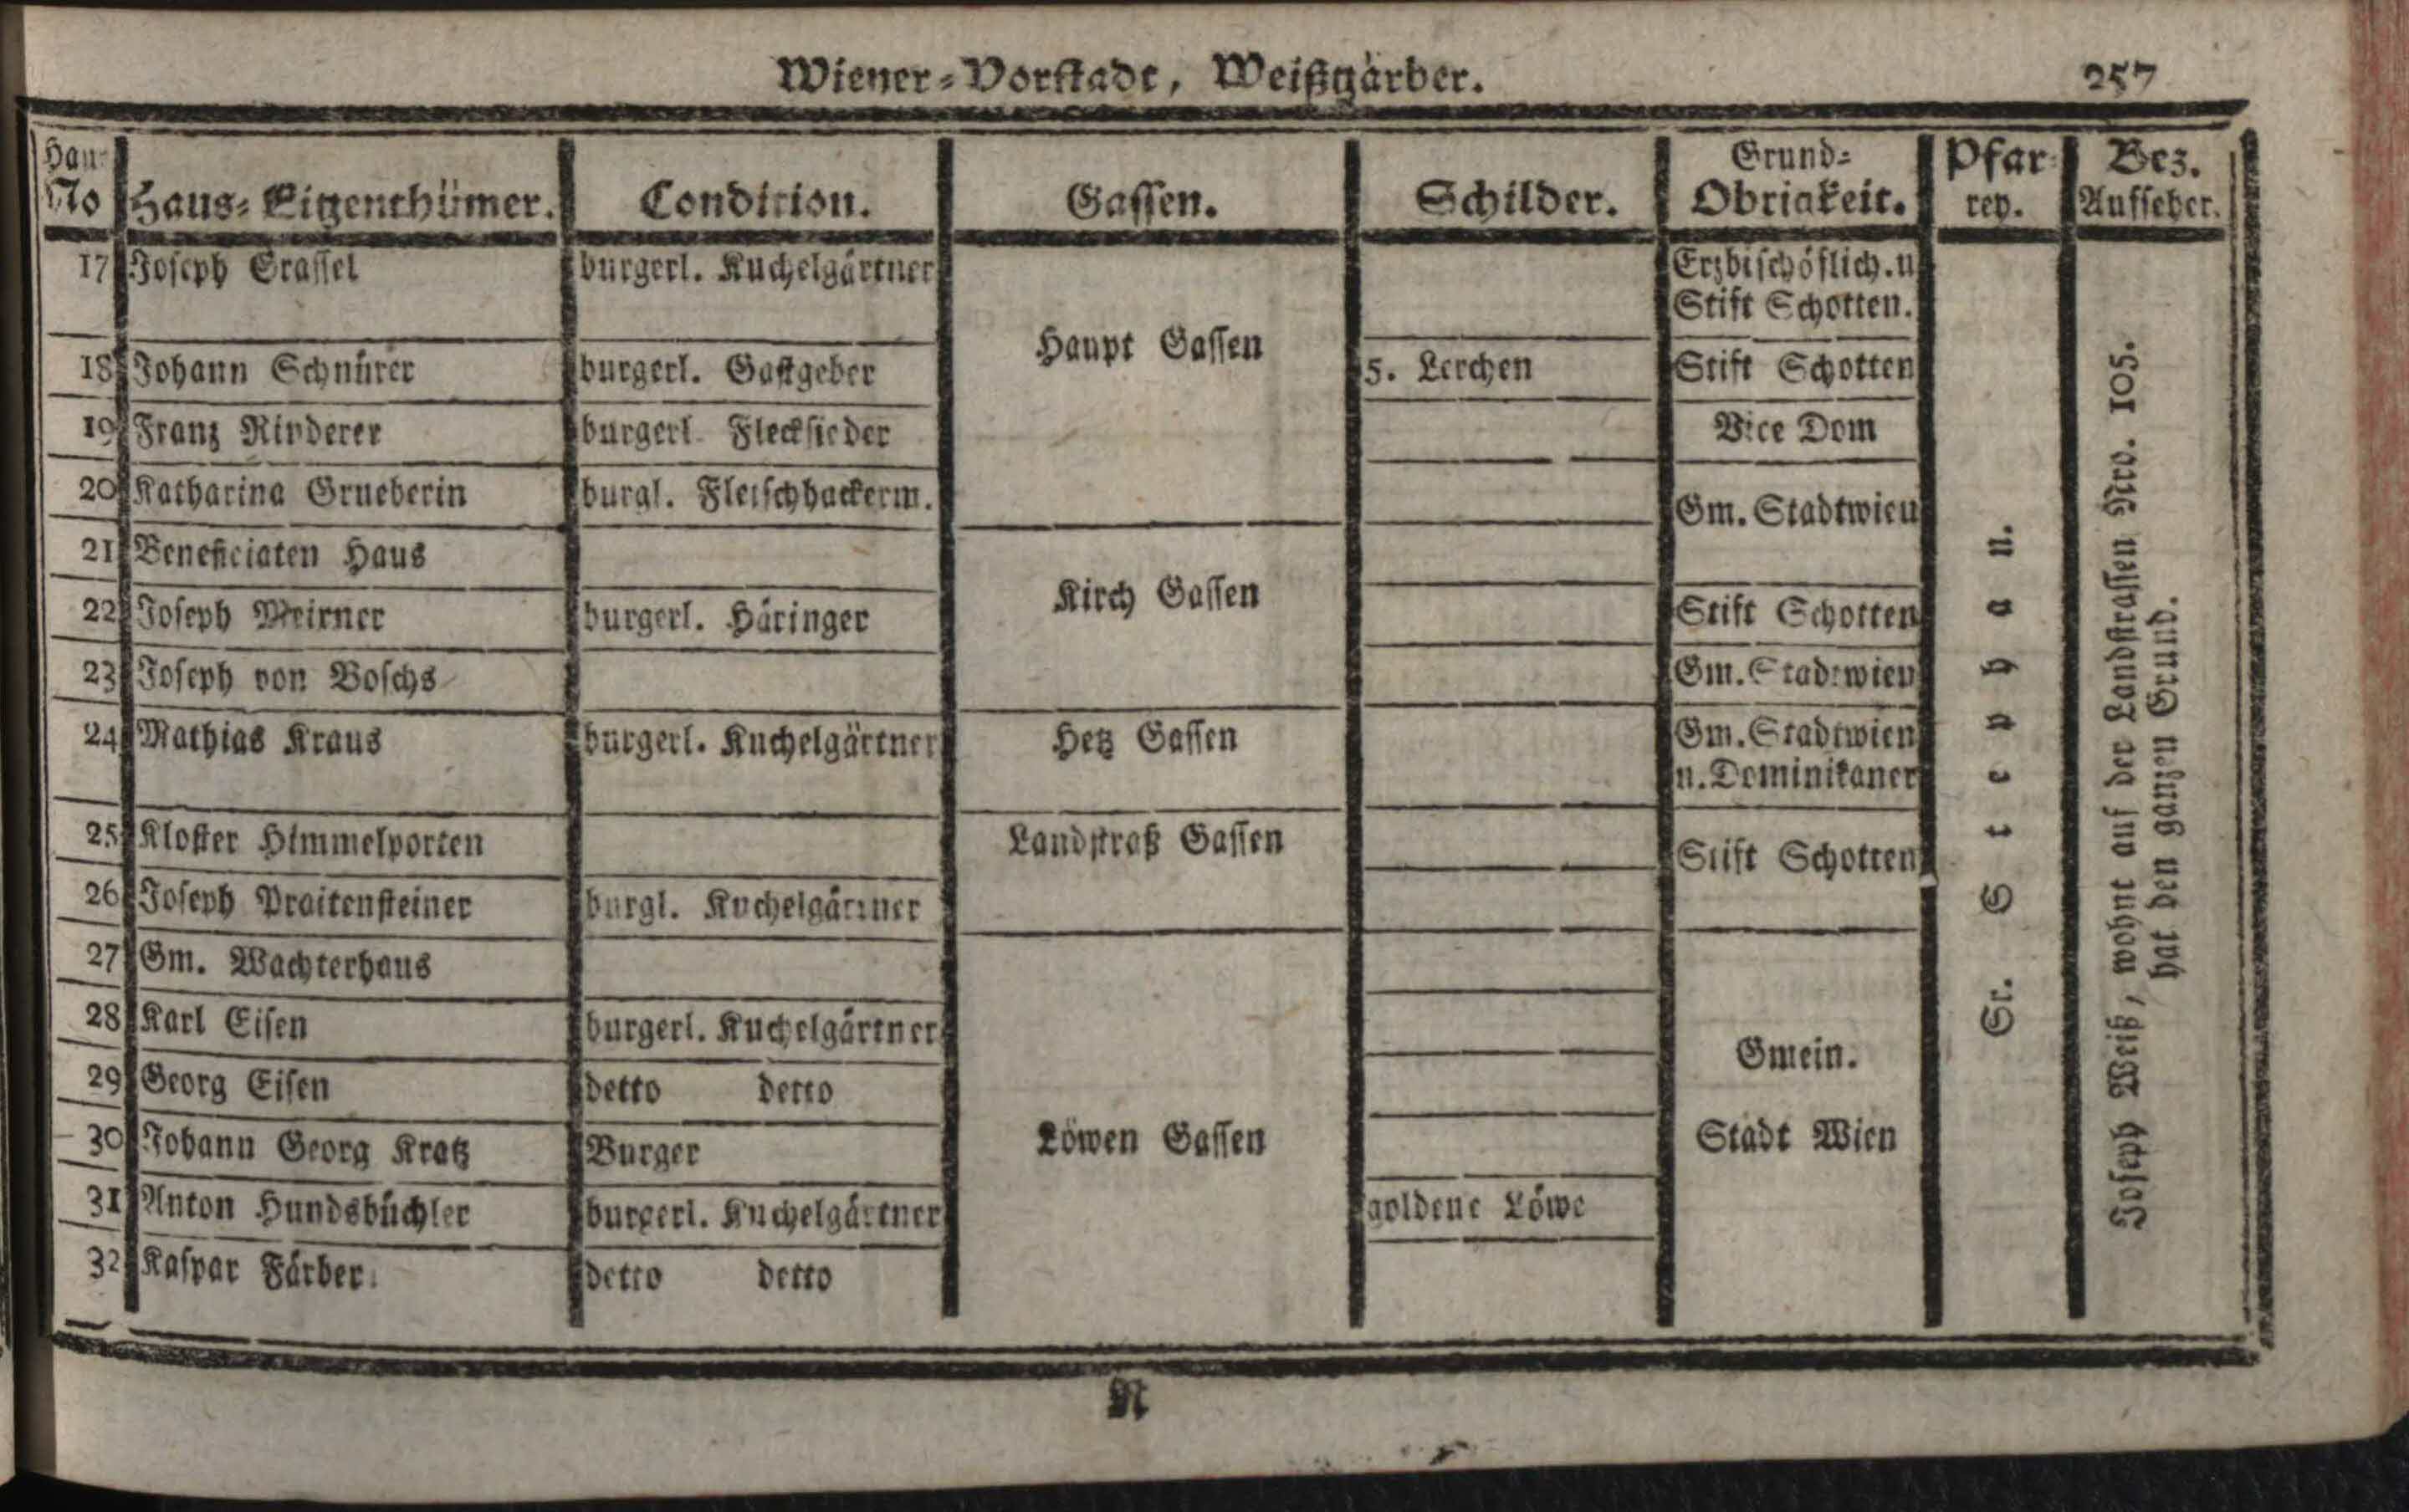 Wiener-Vorstadt, Weißgärber. 257
Hau-
No Haus-Eigenthümer. Condition. Gassen. Schilder. Grund-Obrigkeit. Pfarrey. Bez. Aufseher.
17 Joseph Grassel burgerl. Kuchelgärtner Erzbischöflich. u
Stift Schotten.
Haupt Gassen
18 Johann Schnürer burgerl. Gastgeber 5. Lerchen Stift Schotten
19 Franz Rinderer burgerl. Flecksieder Vice Dom
20 Katharina Grueberin burgl. Fleischhackerin. Gm. Stadtwien
21 Beneficiaten Haus
Kirch Gassen
22 Joseph Meixner burgerl. Häringer Stift Schotten
23 Joseph von Boschs Gm. Stadtwien
24 Mathias Kraus burgerl. Kuchelgärtner Hetz Gassen Gm. Stadtwien
u. Dominikaner
25 Kloster Himmelporten Landstraß Gassen Stift Schotten
26 Joseph Praitensteiner burgl. Kuchelgärtner
27 Gm. Wachterhaus
28 Karl Eisen burgerl. Kuchelgärtner
Gmein.
29 Georg Eisen detto detto
30 Johann Georg Kratz Burger Löwen Gassen Stadt Wien
31 Anton Hundsbüchler burgerl. Kuchelgärtner goldene Löwe
32 Kaspar Färber. detto detto
St. Stephan.
Joseph Weiß, wohnt auf der Landstrassen Nro. 105.
hat den ganzen Grund.
R